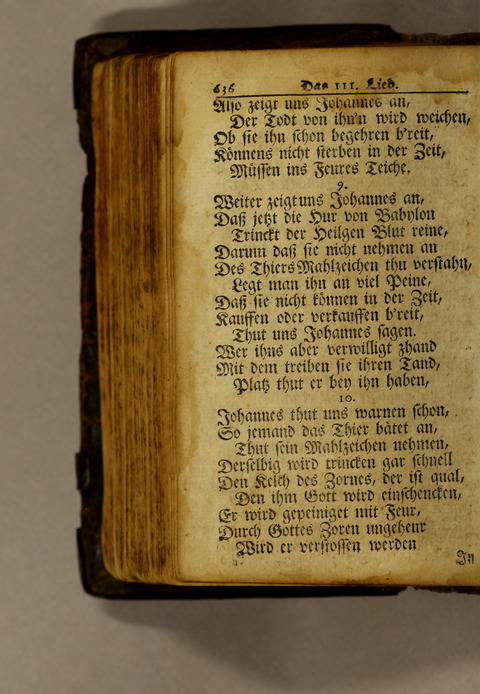 636 Das III. Lied.
Also zeigt uns Johannes an,
Der Todt von ihn'n wird weichen,
Ob sie ihn schon begehren b'reit,
Können's nicht sterben in der Zeit,
Müssen ins Feures Teiche.
9.
Weiter zeigt uns Johannes an,
Daß jetzt die Hur von Babylon
Trinckt der Heilgen Blut reine,
Darum daß sie nicht nehmen an
Des Thiers Mahlzeichen thu verstahn,
Legt man ihn an viel Peine,
Daß sie nicht können in der Zeit,
Kauffen oder verkauffen b'reit,
Thut uns Johannes sagen.
Wer ihns aber verwilligt zhand
Mit dem treiben sie ihren Tand,
Platz thut er bey ihn haben,
10.
Johannes thut uns warnen schon,
So jemand das Thier bätet an,
Thut sein Mahlzeichen nehmen,
Derselbig wird trincken gar schnell
Den Kelch des Zornes, der ist qual,
Den ihm Gott wird einschencken,
Er wird gepeiniget mit Feur,
Durch Gottes Zoren ungeheur
Wird er verstossen werden
In